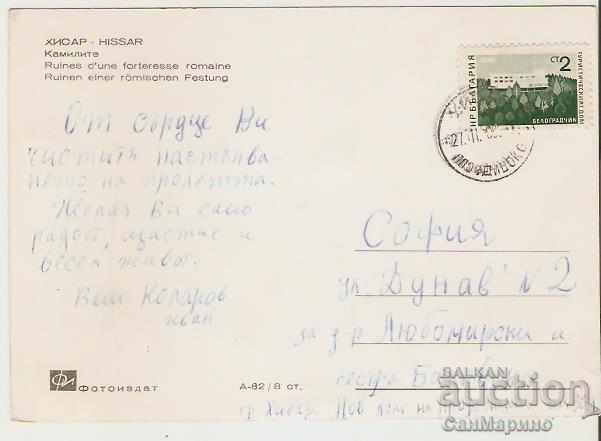 ХИСАР - HISSAR
Камилите
Ruines d'une forteresse romaine
Ruinen einer römischen Festung
СТ 2
НР БЪЛГАРИЯ
ТУРИСТИЧЕСКИЯТ ДОМ
БЕЛОГРАДЧИК
27.II.
От сърдце Ви
честитя настъпва-
нето на пролетта.
Желая Ви само
радост, щастие и
весел живот.
Коларов
Иван
София
ул. Дунав № 2
за д-р Любомирски и
гр. Хисар. на
Фотоиздат
А-82/8 ст.
BALKAN
auction
СанМарино